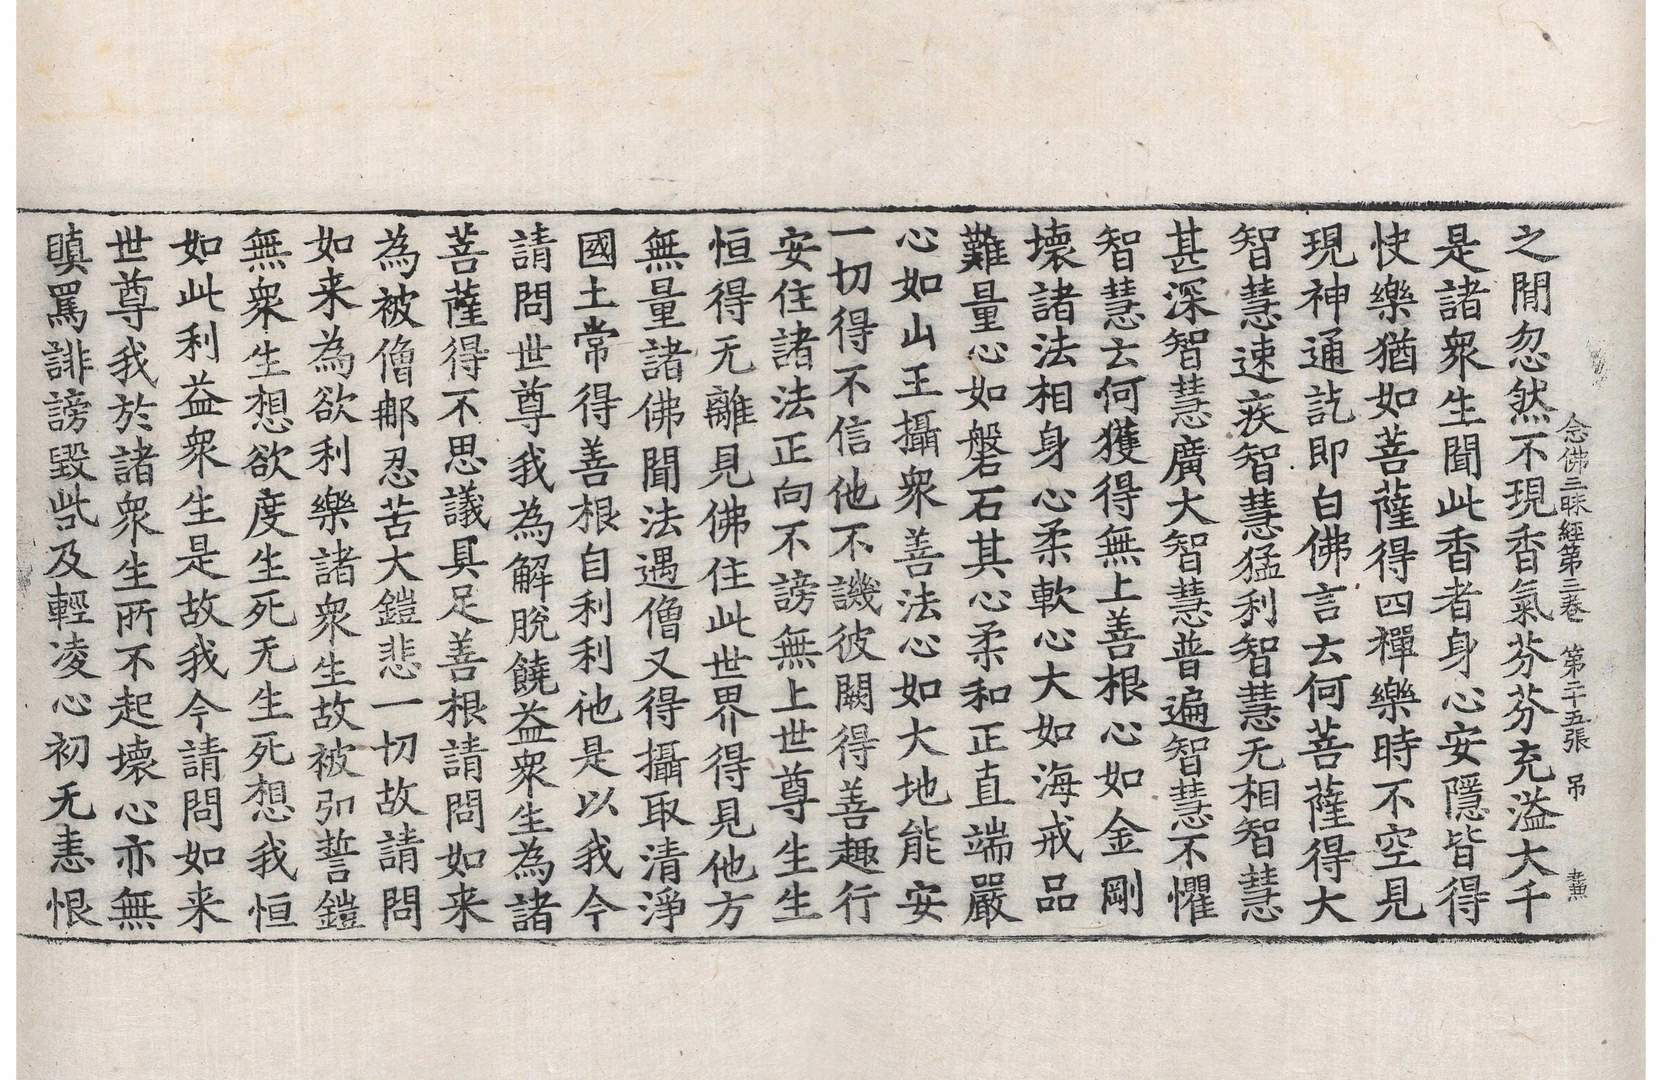 念佛三昧經第三卷 第二十五張 吊
之閒忽然不現香氣芬芬充溢大千
是諸衆生聞此香者身心安隱皆得
快樂猶如菩薩得四禪樂時不空見
現神通訖即白佛言云何菩薩得大
智慧速疾智慧猛利智慧无相智慧
甚深智慧廣大智慧普遍智慧不懼
智慧云何獲得無上善根心如金剛
壞諸法相身心柔軟心大如海戒品
難量心如磐石其心柔和正直端嚴
心如山王攝衆善法心如大地能安
一切得不信他不譏彼闕得善趣行
安住諸法正向不謗無上世尊生生
恒得无離見佛住此世界得見他方
無量諸佛聞法遇僧又得攝取清淨
國土常得善根自利利他是以我今
請問世尊我為解脫饒益衆生為諸
菩薩得不思議具足善根請問如来
為被僧郍忍苦大鎧悲一切故請問
如来為欲利樂諸衆生故被弘誓鎧
無衆生想欲度生死无生死想我恒
如此利益衆生是故我今請問如来
世尊我於諸衆生所不起壞心亦無
瞋罵誹謗毀呰及輕凌心初无恚恨